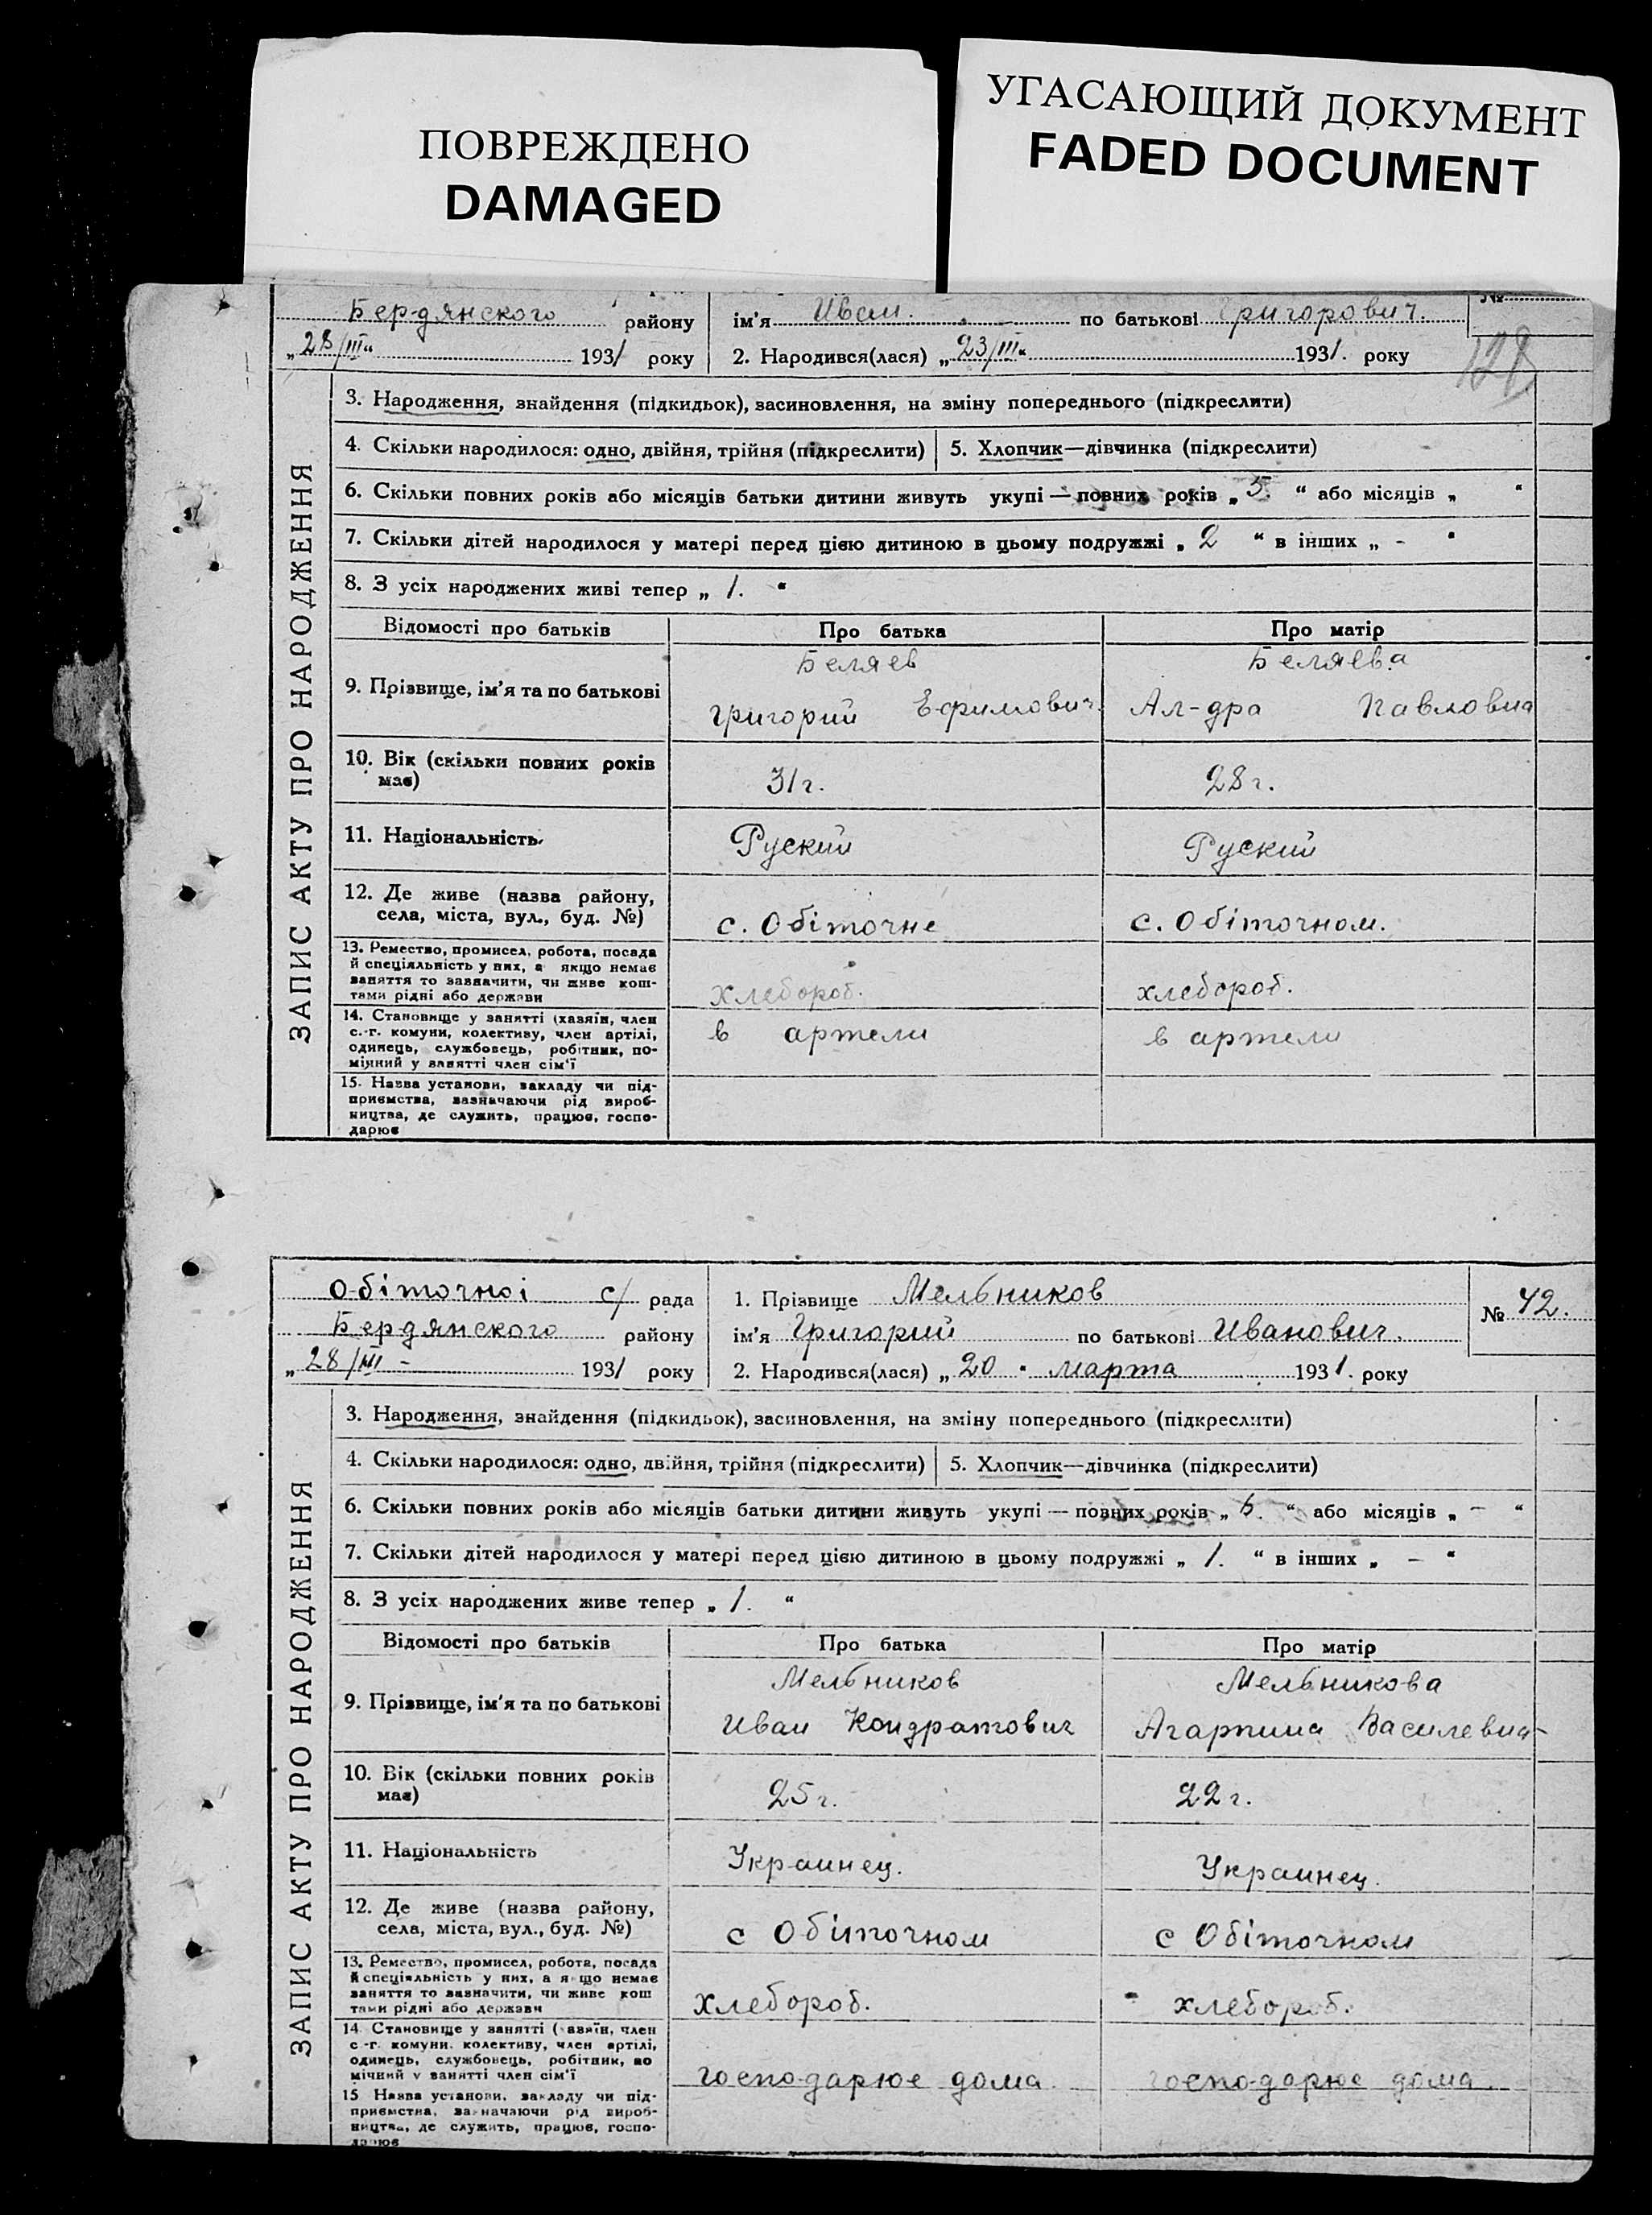 ПОВРЕЖДЕНО
DAMAGED
УГАСАЮЩИЙ ДОКУМЕНТ
FADED DOCUMENT
Бердянского району
ім'я Иван. по батькові Григорович.
№
„28/III“ 1931 року
2. Народився(лася) „23/III“ 1931. року
128
ЗАПИС АКТУ ПРО НАРОДЖЕННЯ
3. Народження, знайдення (підкидьок), засиновлення, на зміну попереднього (підкреслити)
4. Скільки народилося: одно, двійня, трійня (підкреслити)
5. Хлопчик—дівчинка (підкреслити)
6. Скільки повних років або місяців батьки дитини живуть укупі — повних років „ 5. “ або місяців „ “
7. Скільки дітей народилося у матері перед цією дитиною в цьому подружжі „ 2 “ в інших „ - “
8. З усіх народжених живі тепер „ 1. “
Відомості про батьків
Про батька
Про матір
9. Прізвище, ім'я та по батькові
Беляев
Григорий Ефимович.
Беляева
Ал-дра Павловна
10. Вік (скільки повних років
має)
31 г.
28 г.
11. Національність
Руский
Руский
12. Де живе (назва району,
села, міста, вул., буд. №)
с. Обіточне
с. Обіточном.
13. Ремество, промисел, робота, посада
й спеціяльність у них, а якщо немає
заняття то зазначити, чи живе кош-
тами рідні або держави
хлебороб.
хлебороб.
14. Становище у занятті (хазяїн, член
с.-г. комуни, колективу, член артілі,
одинець, службовець, робітник, по-
мічний у занятті член сім'ї
в артели
в артели
15. Назва установи, закладу чи під-
приємства, зазначаючи рід вироб-
ництва, де служить, працює, госпо-
дарює
Обіточної с/ рада
1. Прізвище Мельников
№ 42.
Бердянского району
ім'я Григорий по батькові Иванович.
„28/III - 1931 року
2. Народився(лася) „20 “ марта 1931. року
ЗАПИС АКТУ ПРО НАРОДЖЕННЯ
3. Народження, знайдення (підкидьок), засиновлення, на зміну попереднього (підкреслити)
4. Скільки народилося: одно, двійня, трійня (підкреслити)
5. Хлопчик—дівчинка (підкреслити)
6. Скільки повних років або місяців батьки дитини живуть укупі — повних років „ “ або місяців „ - “
7. Скільки дітей народилося у матері перед цією дитиною в цьому подружжі „ 1. “ в інших „ - “
8. З усіх народжених живе тепер „ 1. “
Відомості про батьків
Про батька
Про матір
9. Прізвище, ім'я та по батькові
Мельников
Иван Кондратович
Мельникова
Агарпина Василевна-
10. Вік (скільки повних років
має)
25 г.
22 г.
11. Національність
Украинец.
Украинец.
12. Де живе (назва району,
села, міста, вул., буд. №)
с Обиточном
с Обіточном
13. Ремество, промисел, робота, посада
й спеціяльність у них, а якщо немає
заняття то зазначити, чи живе кош
тами рідні або держави
хлебороб.
хлебороб.
14. Становище у занятті (хазяїн, член
с-г. комуни, колективу, член артілі,
одинець, службовець, робітник, по
мічний у занятті член сім'ї
господарює дома
господарює дома.
15 Назва установи, закладу чи під-
приємства, зазначаючи рід вироб-
ництва, де служить, працює, госпо-
дарює